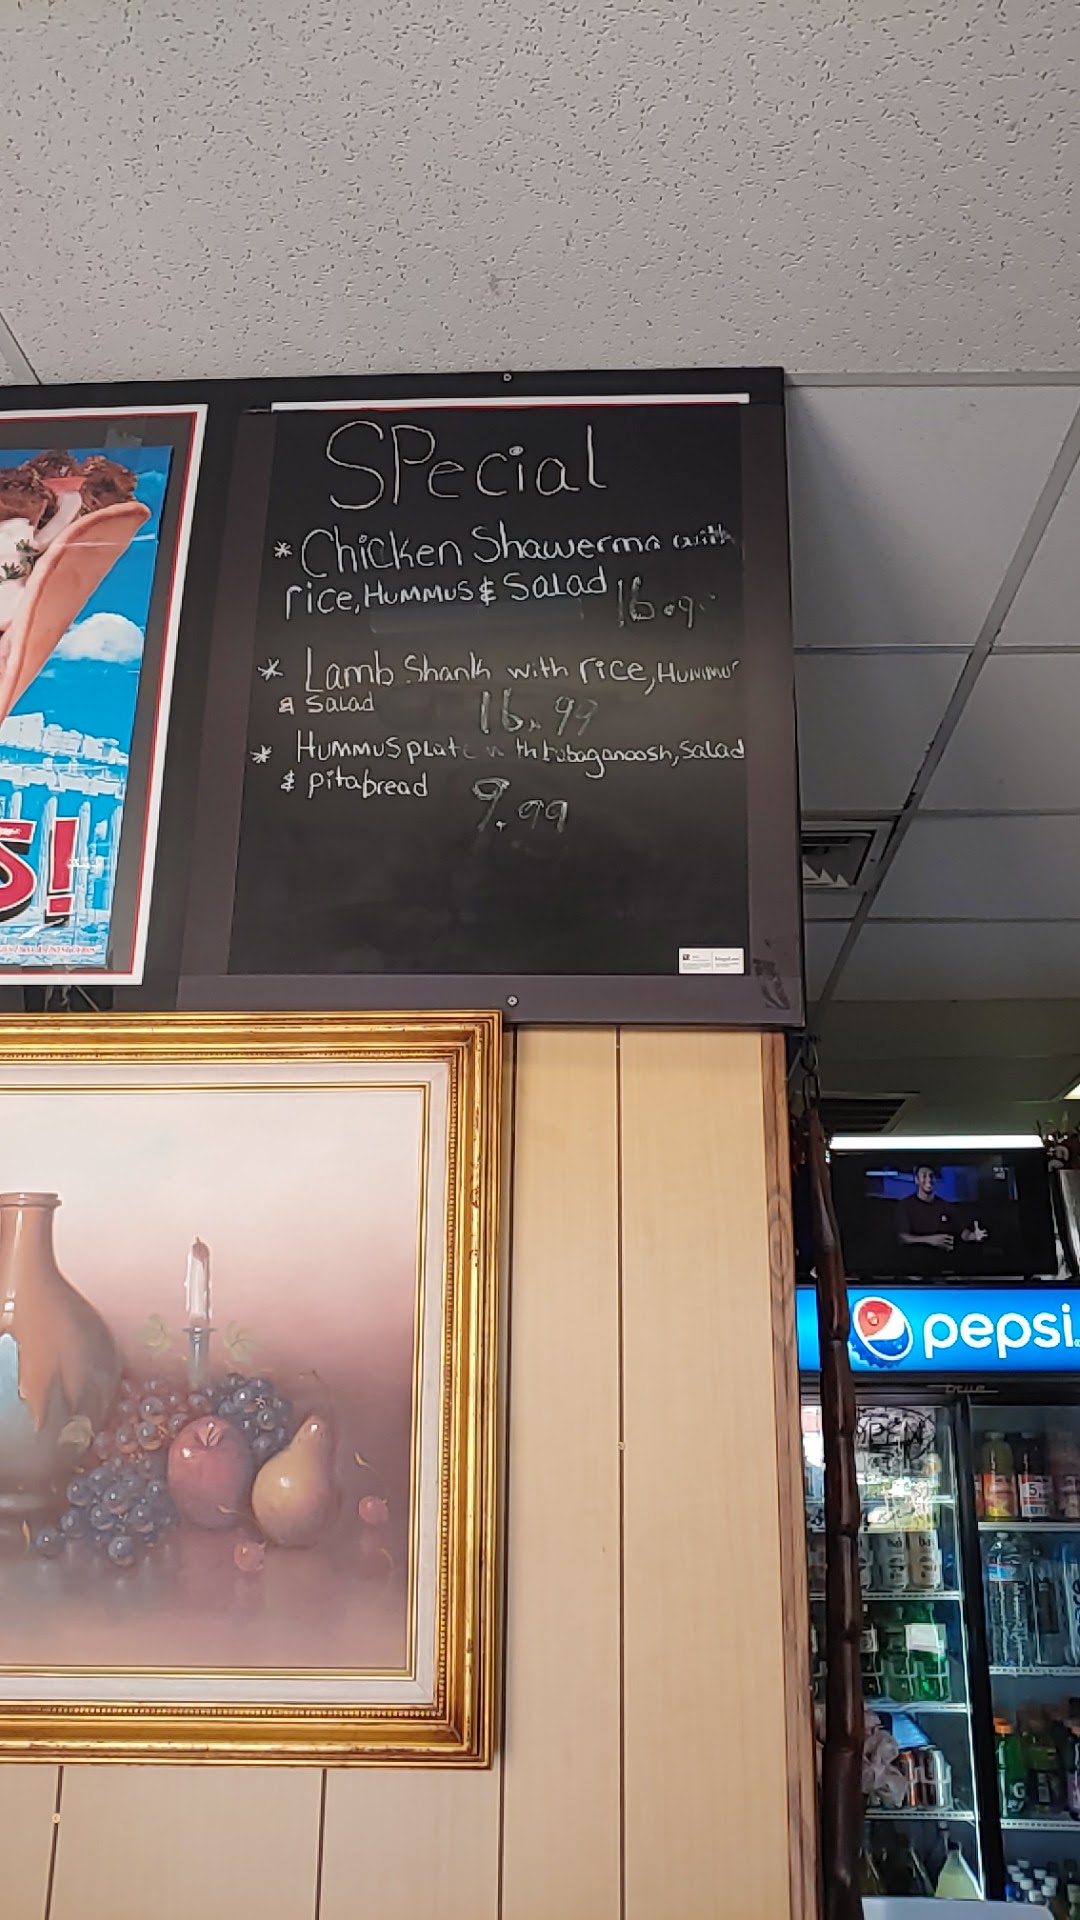 SPecial
* Chicken Shawerma with
rice, Hummus & Salad
* Lamb Shank with rice, Hummus
& Salad 16.99
* Hummus plate with babaganoosh, Salad
& pitabread 9.99
S!
pepsi